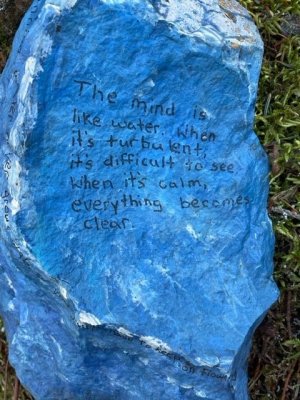 The mind is
like water. When
it's turbulent,
it's difficult to see.
When it's calm,
everything becomes
clear.